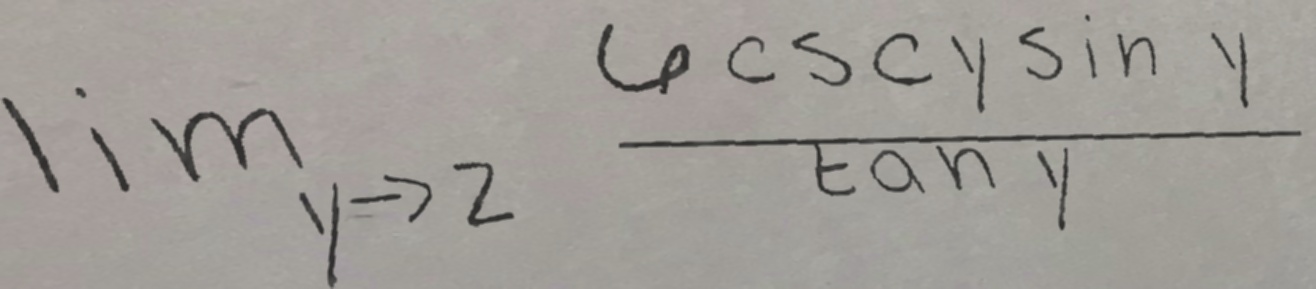 lim y→2 6cscysin y / tan y